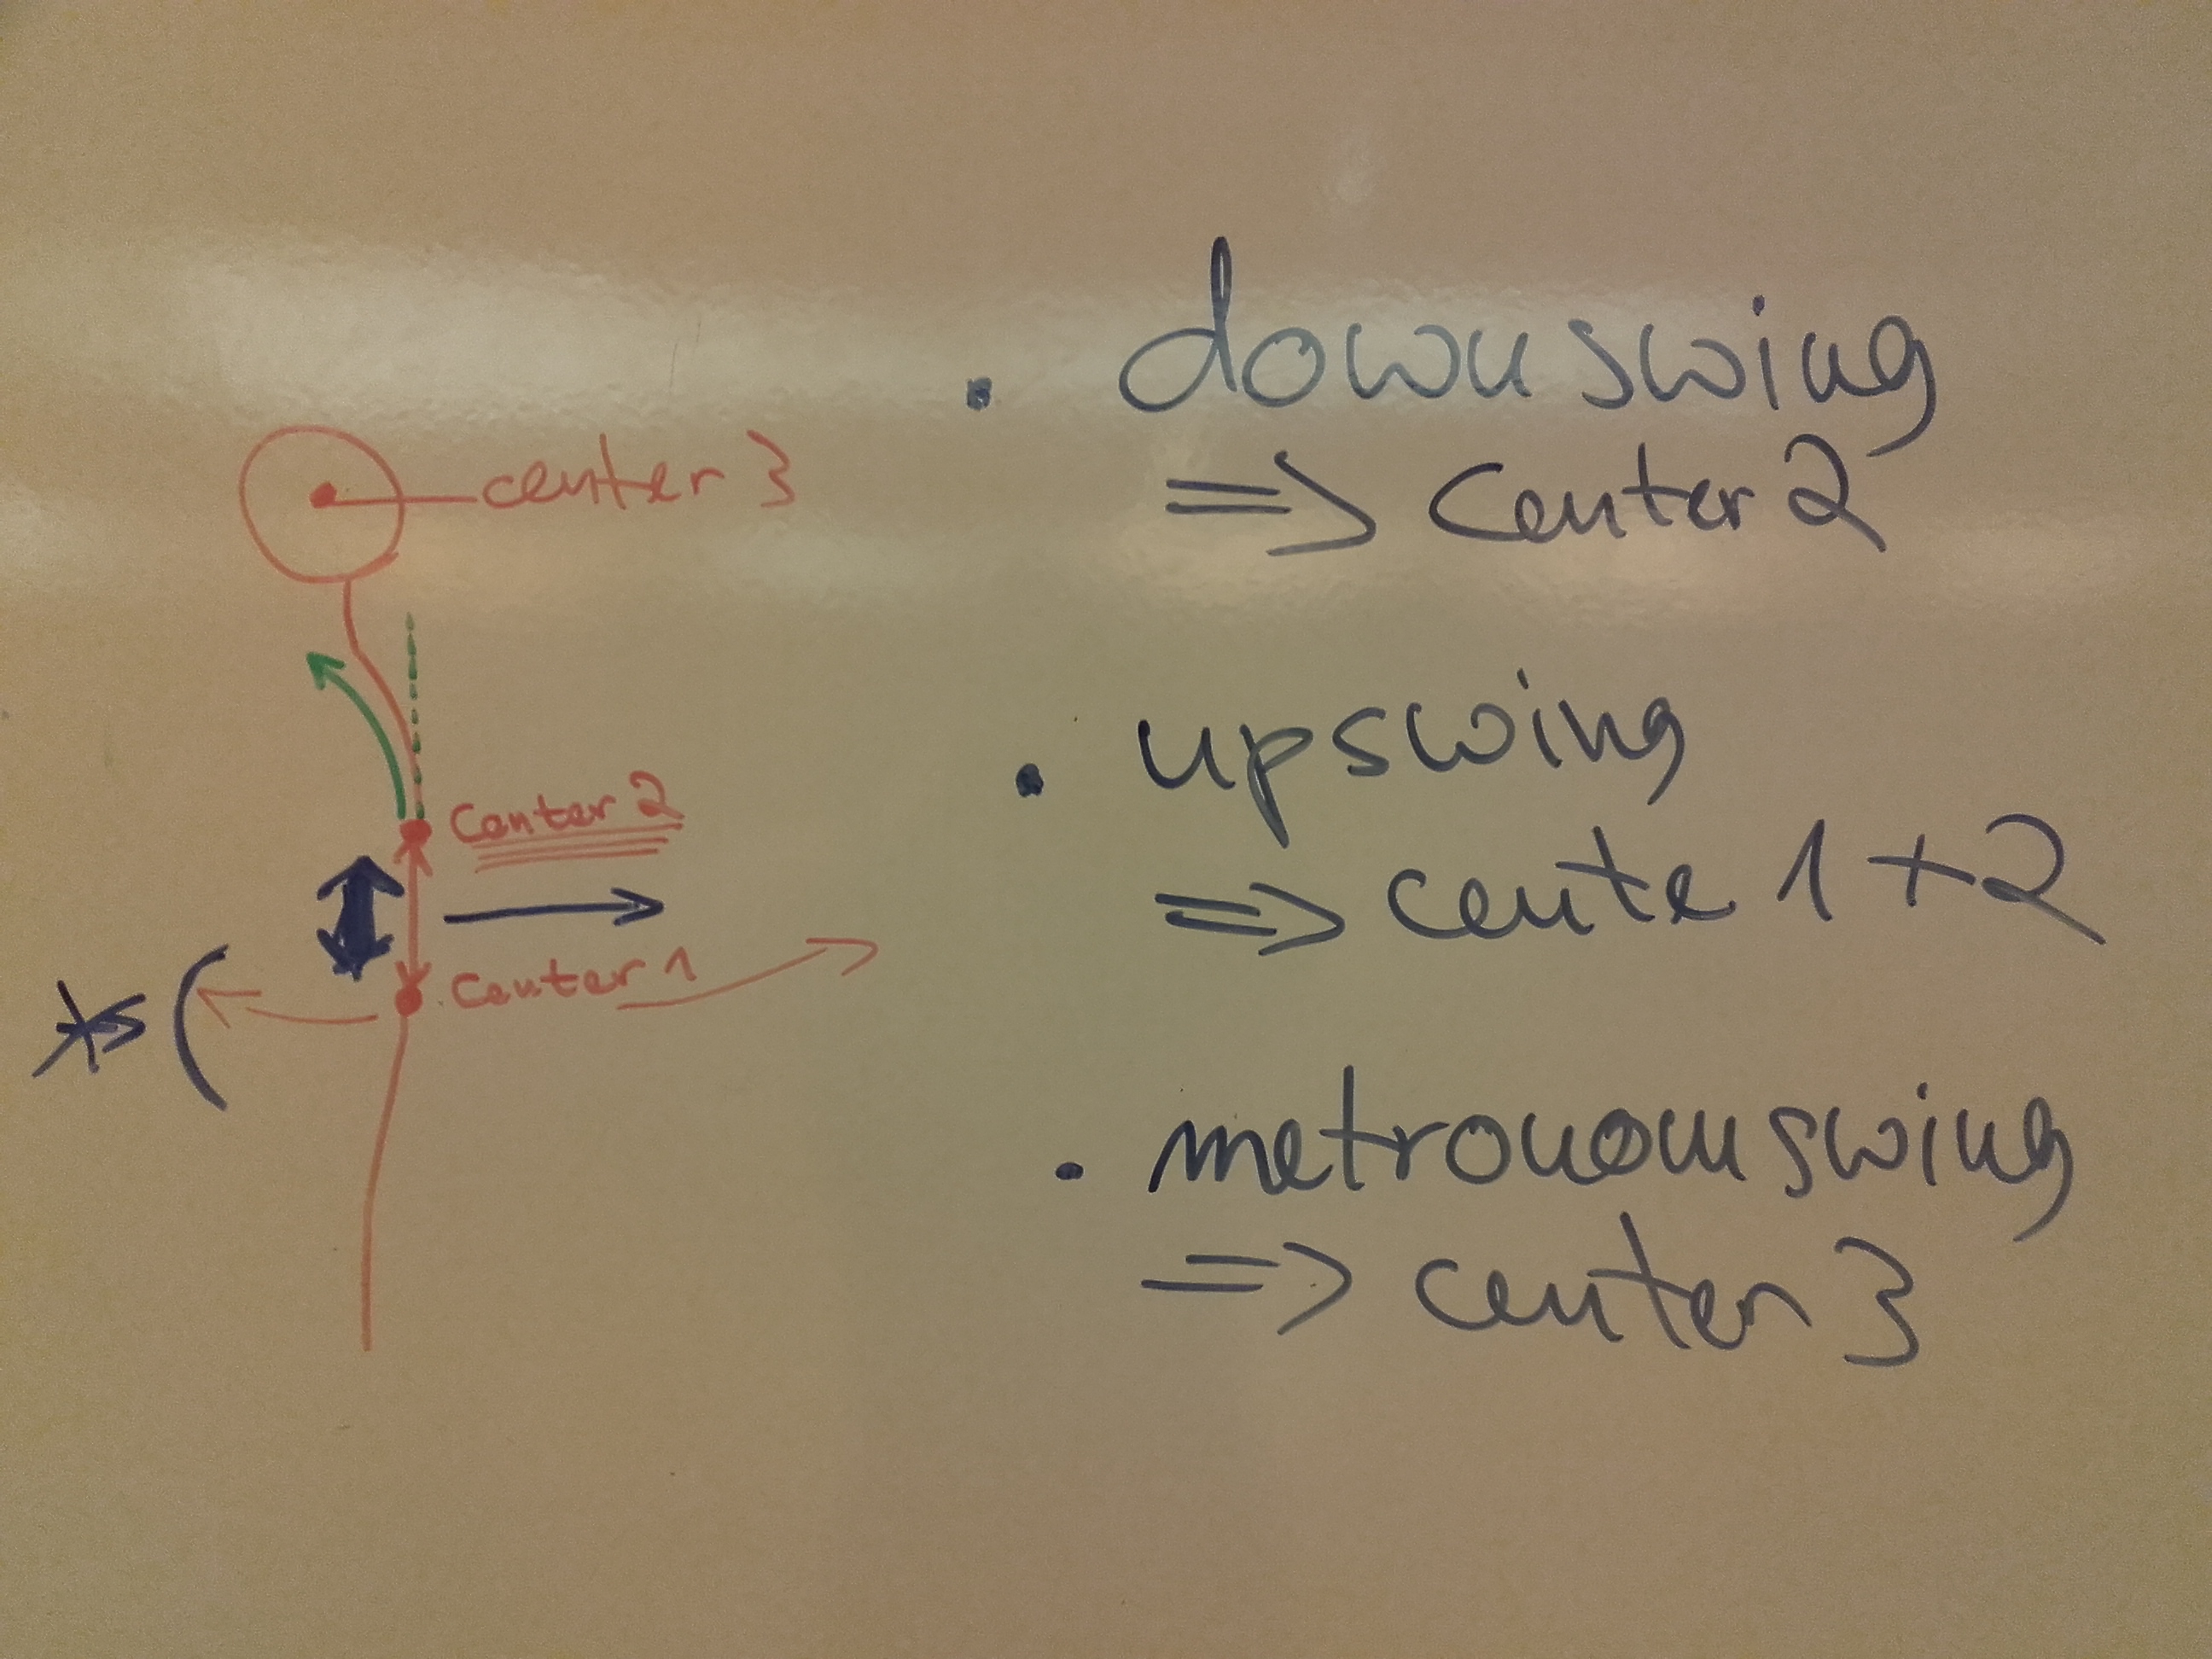 center 3
center 2
center 1
• downswing
=> center 2
• upswing
=> cente 1 + 2
• metronomswing
=> center 3